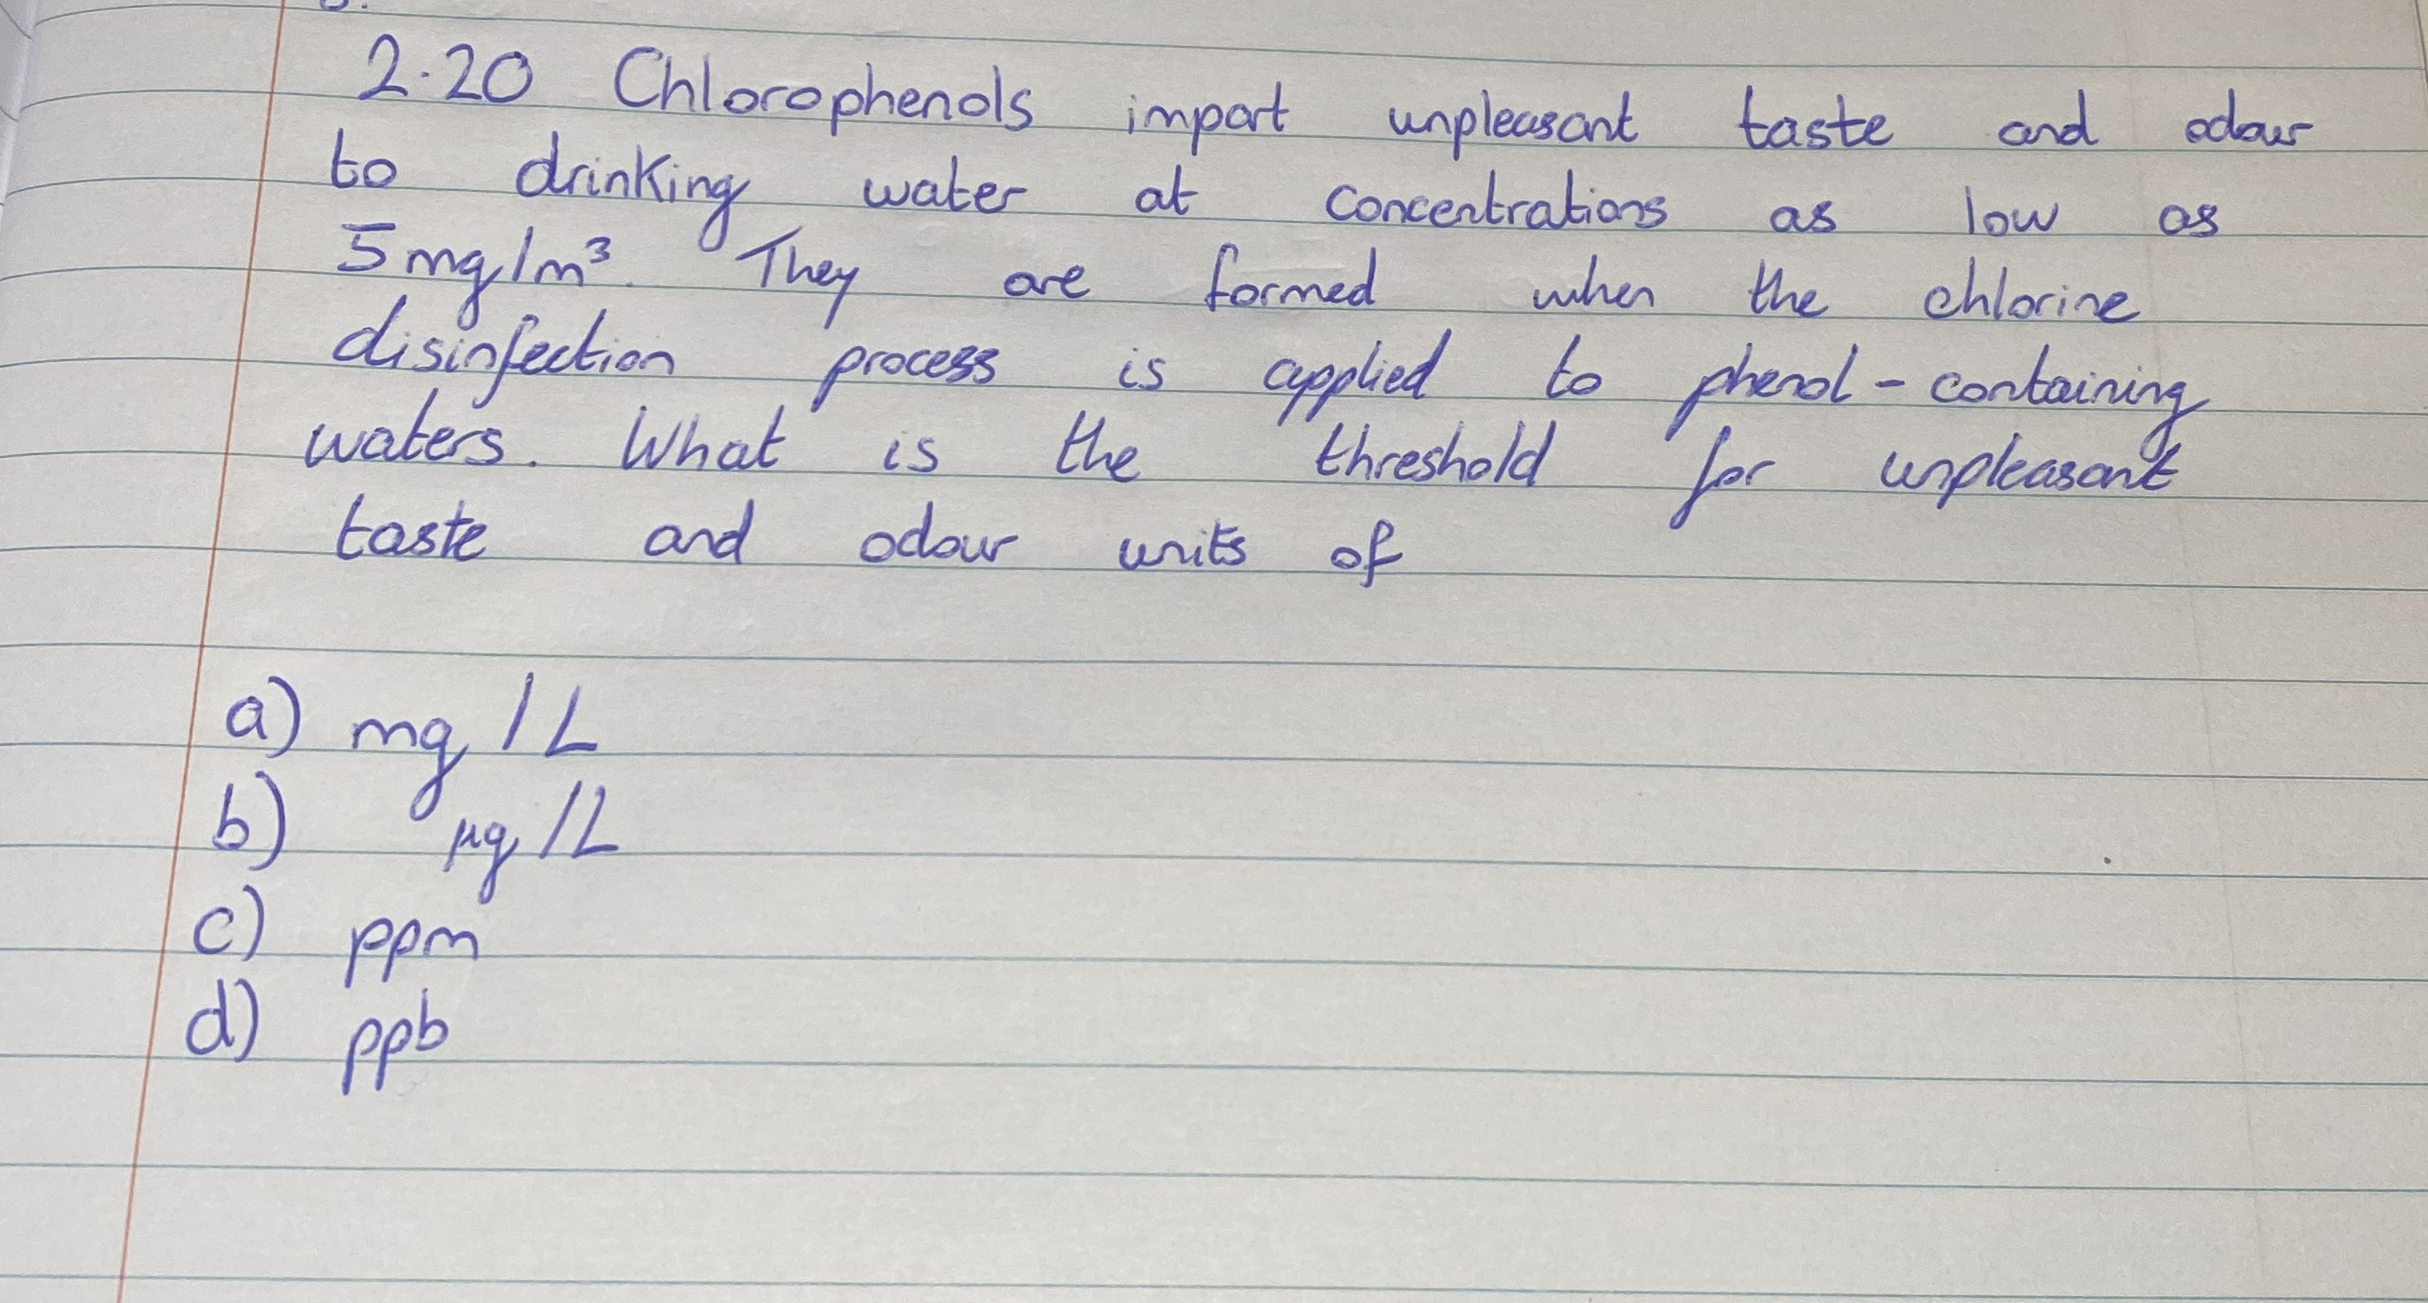 2.20 Chlorophenols impart unpleasant taste and odour
to drinking water at concentrations as low as
5mg/m³. They are formed when the chlorine
disinfection process is applied to phenol-containing
waters. What is the threshold for unpleasant
taste and odour units of
a) mg/L
b) µg/L
c) ppm
d) ppb